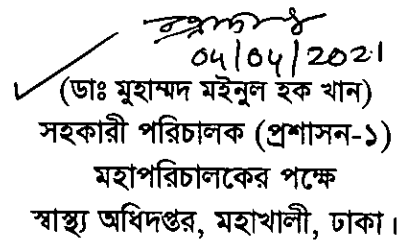 04/04/2021
(ডাঃ মুহাম্মদ মইনুল হক খান)
সহকারী পরিচালক (প্রশাসন-১)
মহাপরিচালকের পক্ষে
স্বাস্থ্য অধিদপ্তর, মহাখালী, ঢাকা।